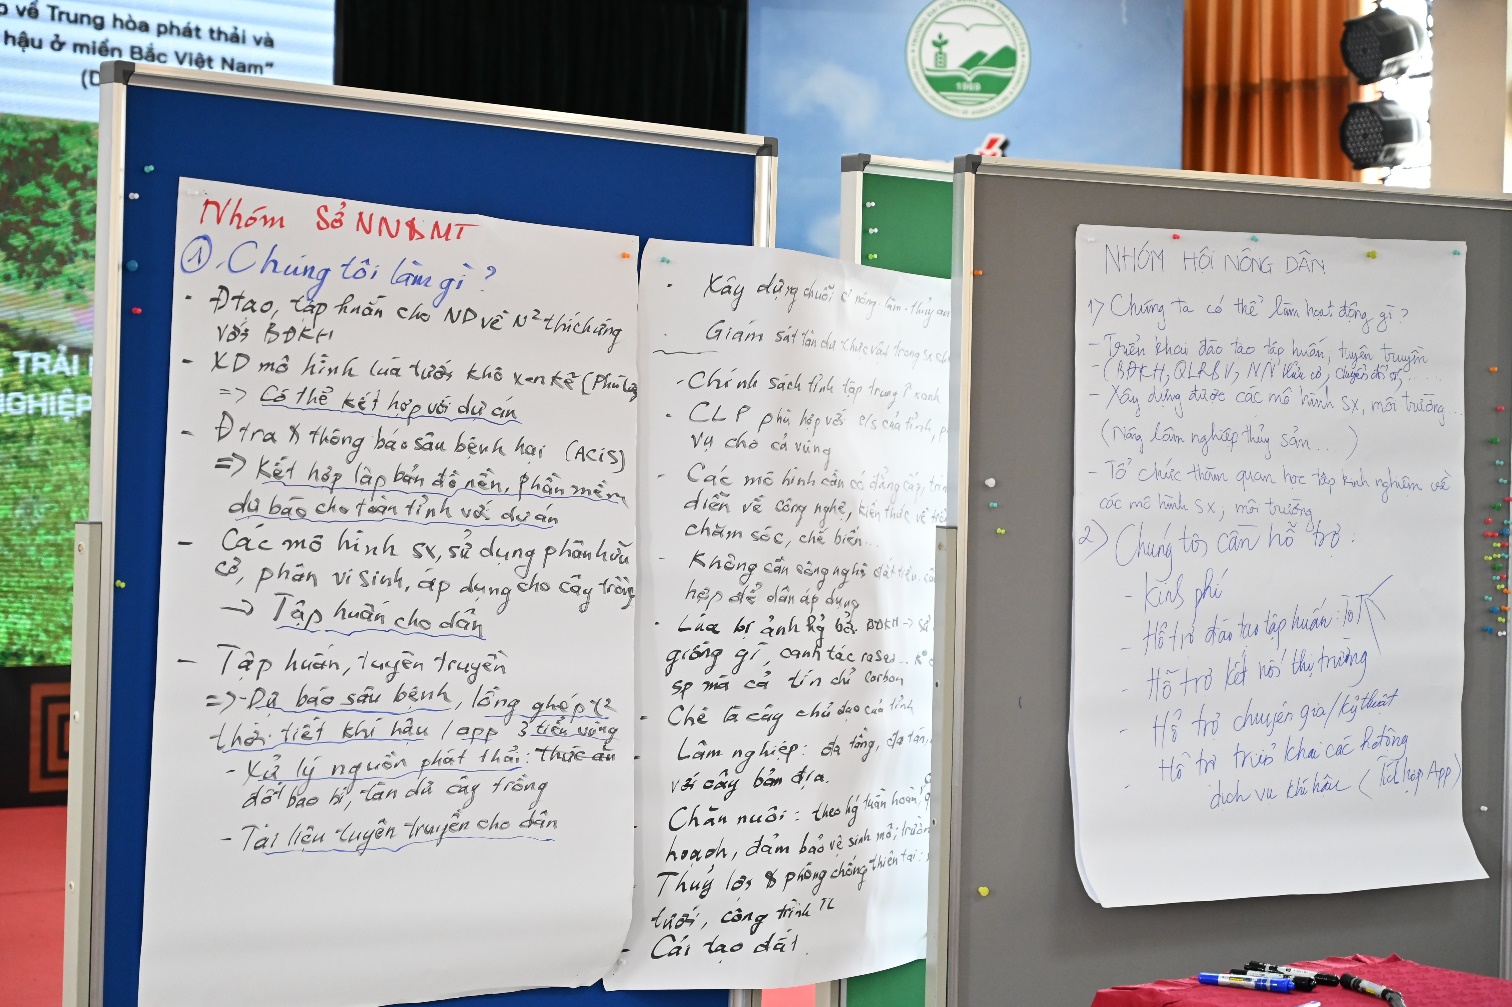 về Trung hòa phát thải và
hậu ở miền Bắc Việt Nam"
(D
TRẢI
NGHIỆP
1969
Nhóm Sở NN&MT
① Chúng tôi làm gì?
- Đtạo, tập huấn cho ND về N² thích ứng
với BĐKH
- XD mô hình lúa tưới khô xen kẽ (Phú
=> Có thể kết hợp với dự án
- Đtra & thông báo sâu bệnh hại (ACIS)
=> Kết hợp lập bản đồ nền, phần mềm
dự báo cho toàn tỉnh với dự án
- Các mô hình sx, sử dụng phân hữu
cơ, phân vi sinh, áp dụng cho cây trồng
-> Tập huấn cho dân
- Tập huấn, tuyên truyền
=> - Dự báo sâu bệnh, lồng ghép
thời tiết khí hậu / app 3 tiểu vùng
- Xử lý nguồn phát thải: thức ăn
đốt bao bì, tàn dư cây trồng
- Tài liệu tuyên truyền cho dân
- Xây dựng chuỗi nông-lâm-thủy
- Giám sát tàn dư thực vật trong sx
- Chính sách tỉnh tập trung xanh
- CLP phù hợp với c/s của tỉnh,
vụ cho cả vùng
- Các mô hình cần có đẳng cấp,
diễn về công nghệ, kiến thức về
chăm sóc, chế biến...
- Không cần công nghệ đắt tiền,
hợp để dân áp dụng
- Lúa bị ảnh hg bởi BĐKH ->
giống gì, canh tác
sp mà cả tín chỉ carbon
- Chè là cây chủ đạo của tỉnh
- Lâm nghiệp: đa tầng, đa tán,
với cây bản địa.
Chăn nuôi: theo hg tuần hoàn,
hoạch, đảm bảo vệ sinh mt;
Thuỷ lợi & phòng chống thiên tai:
tưới, công trình TL
- Cải tạo đất.
NHÓM HỘI NÔNG DÂN
1) Chúng ta có thể làm hoạt động gì?
- Triển khai đào tạo tập huấn, tuyên truyền
- (BĐKH, QLRBV, NN hữu cơ, chuyển đổi số,.....
- Xây dựng được các mô hình sx, môi trường...
(Nông lâm nghiệp thủy sản....)
- Tổ chức thăm quan học tập kinh nghiệm về
các mô hình sx, môi trường
2) Chúng tôi cần hỗ trợ.
- Kinh phí
- Hỗ trợ đào tạo tập huấn: ToT
- Hỗ trợ kết nối thị trường
- Hỗ trợ chuyên gia/kỹ thuật
- Hỗ trợ triển khai các hđộng
dịch vụ khí hậu (Tích hợp App)